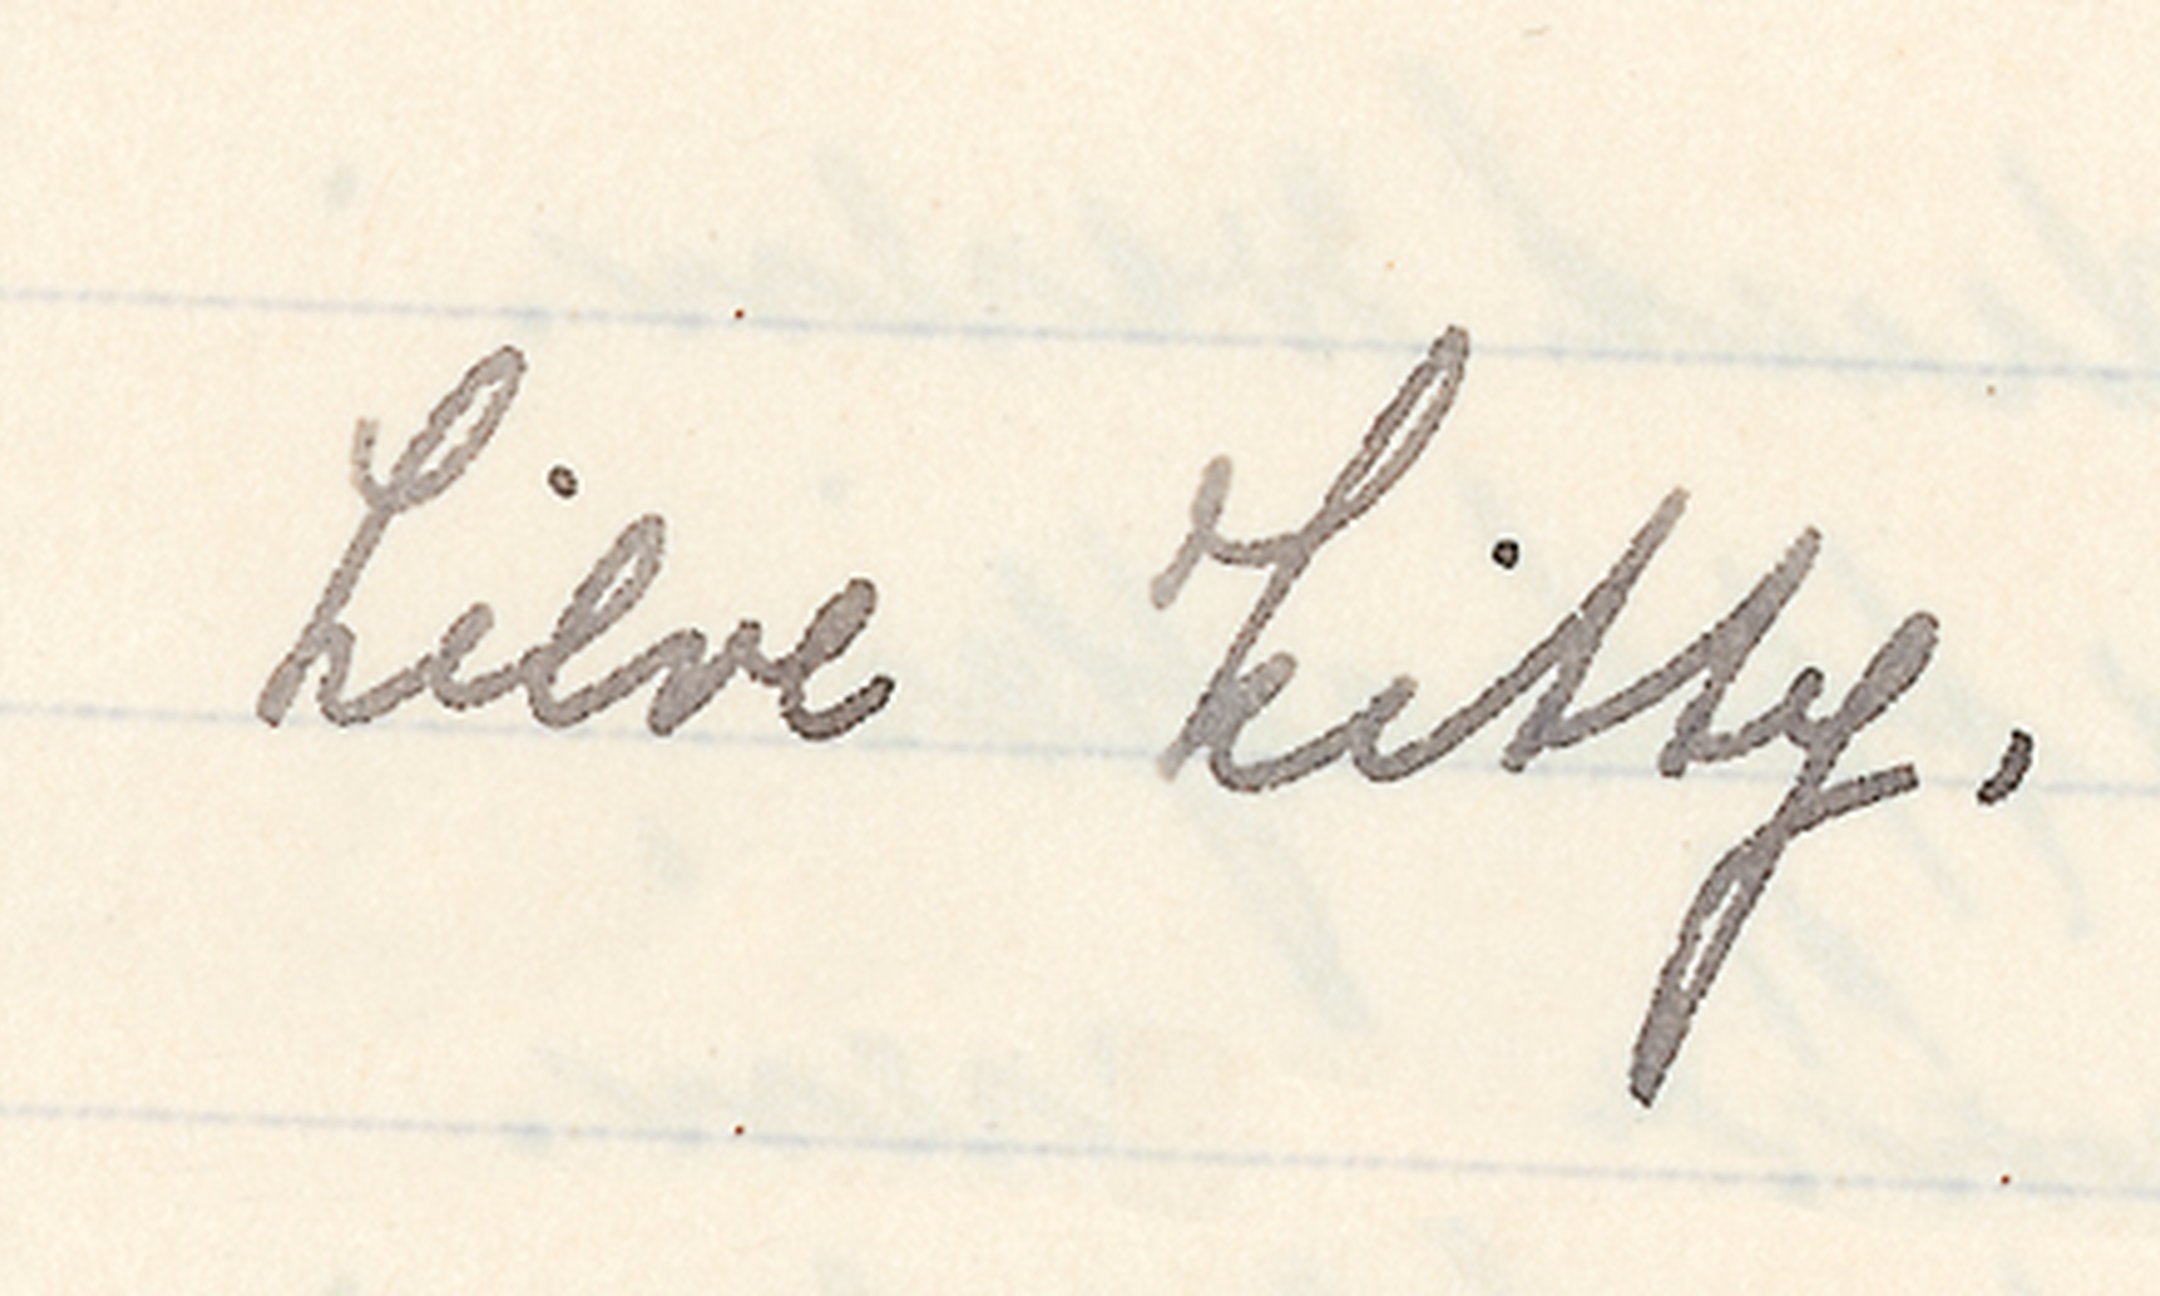 Lieve Kitty,